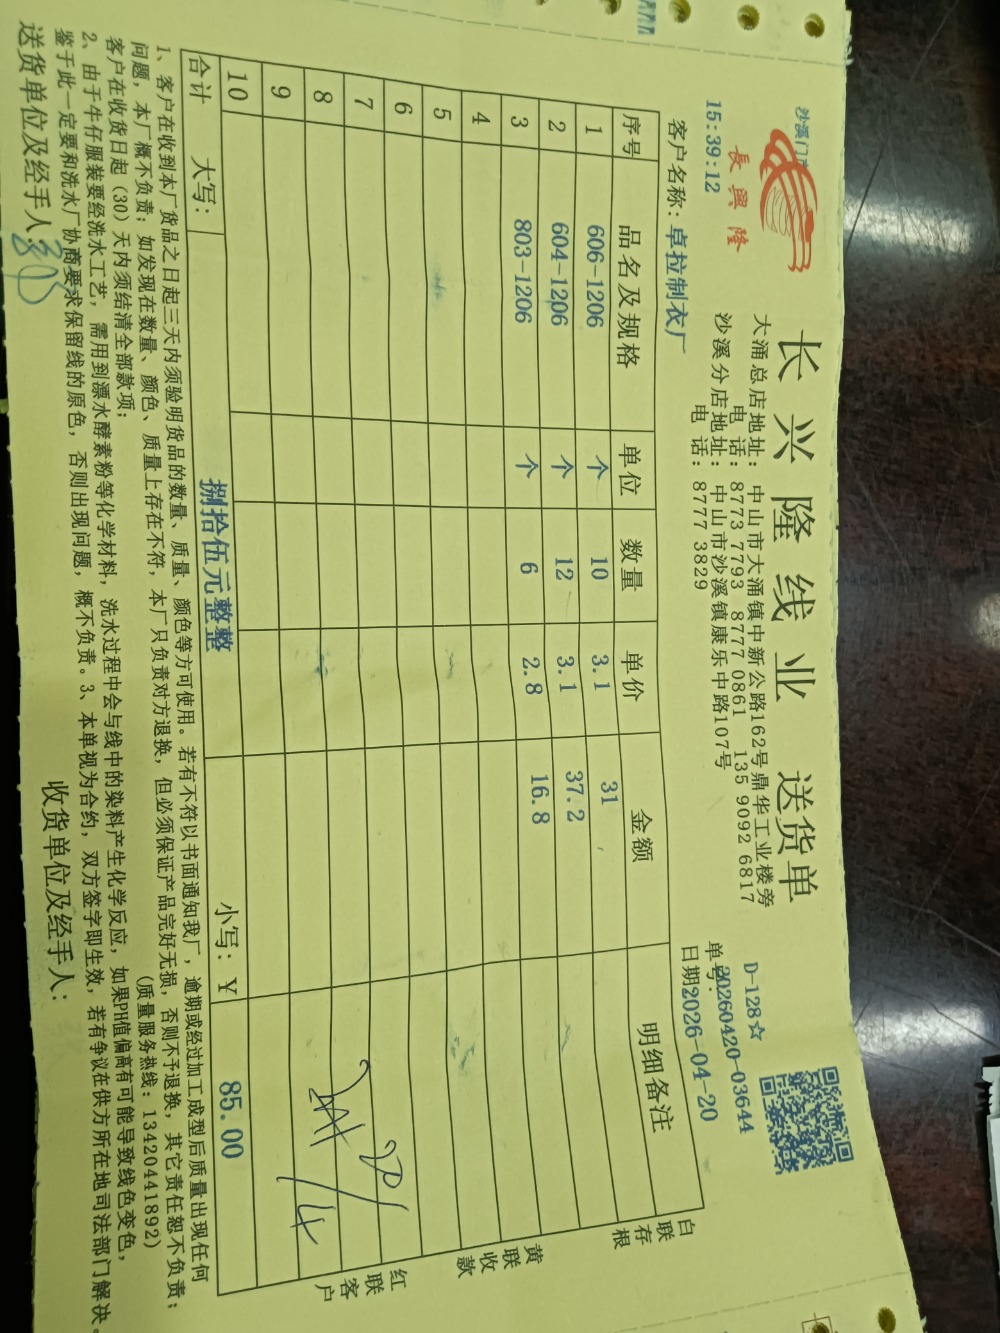 沙溪门市
長興隆
15:39:12
长兴隆线业 送货单
大涌总店地址: 中山市大涌镇中新公路162号鼎华工业楼旁
电 话: 8773 7793 8777 0861 135 9092 6817
沙溪分店地址: 中山市沙溪镇康乐中路107号
电 话: 8777 3829
D-128☆
单号: 20260420-03644
日期 2026-04-20
客户名称: 卓拉制衣厂
序号 品名及规格 单位 数量 单价 金额 明细备注
1 606-1206 个 10 3.1 31
2 604-1206 个 12 3.1 37.2
3 803-1206 个 6 2.8 16.8
4
5
6
7
8
9
10
合计 大写: 捌拾伍元整整 小写: ¥ 85.00
白联存根
黄联收款
红联客户
20/4
1、客户在收到本厂货品之日起三天内须验明货品的数量、质量、颜色等方可使用。若有不符以书面通知我厂, 逾期或经过加工成型后质量出现任何
问题, 本厂概不负责; 如发现在数量、颜色、质量上存在不符, 本厂只负责对方退换, 但必须保证产品完好无损, 否则不予退换, 其它责任恕不负责;
客户在收货日起 (30) 天内须结清全部款项; (质量服务热线: 13420441892)
2、由于牛仔服装要经洗水工艺, 需用到漂水酵素粉等化学材料, 洗水过程中会与线中的染料产生化学反应, 如果PH值偏高有可能导致线色变色,
鉴于此一定要和洗水厂协商要求保留线的原色, 否则出现问题, 概不负责。3、本单视为合约, 双方签字即生效, 若有争议在供方所在地司法部门解决。
送货单位及经手人: 收货单位及经手人: